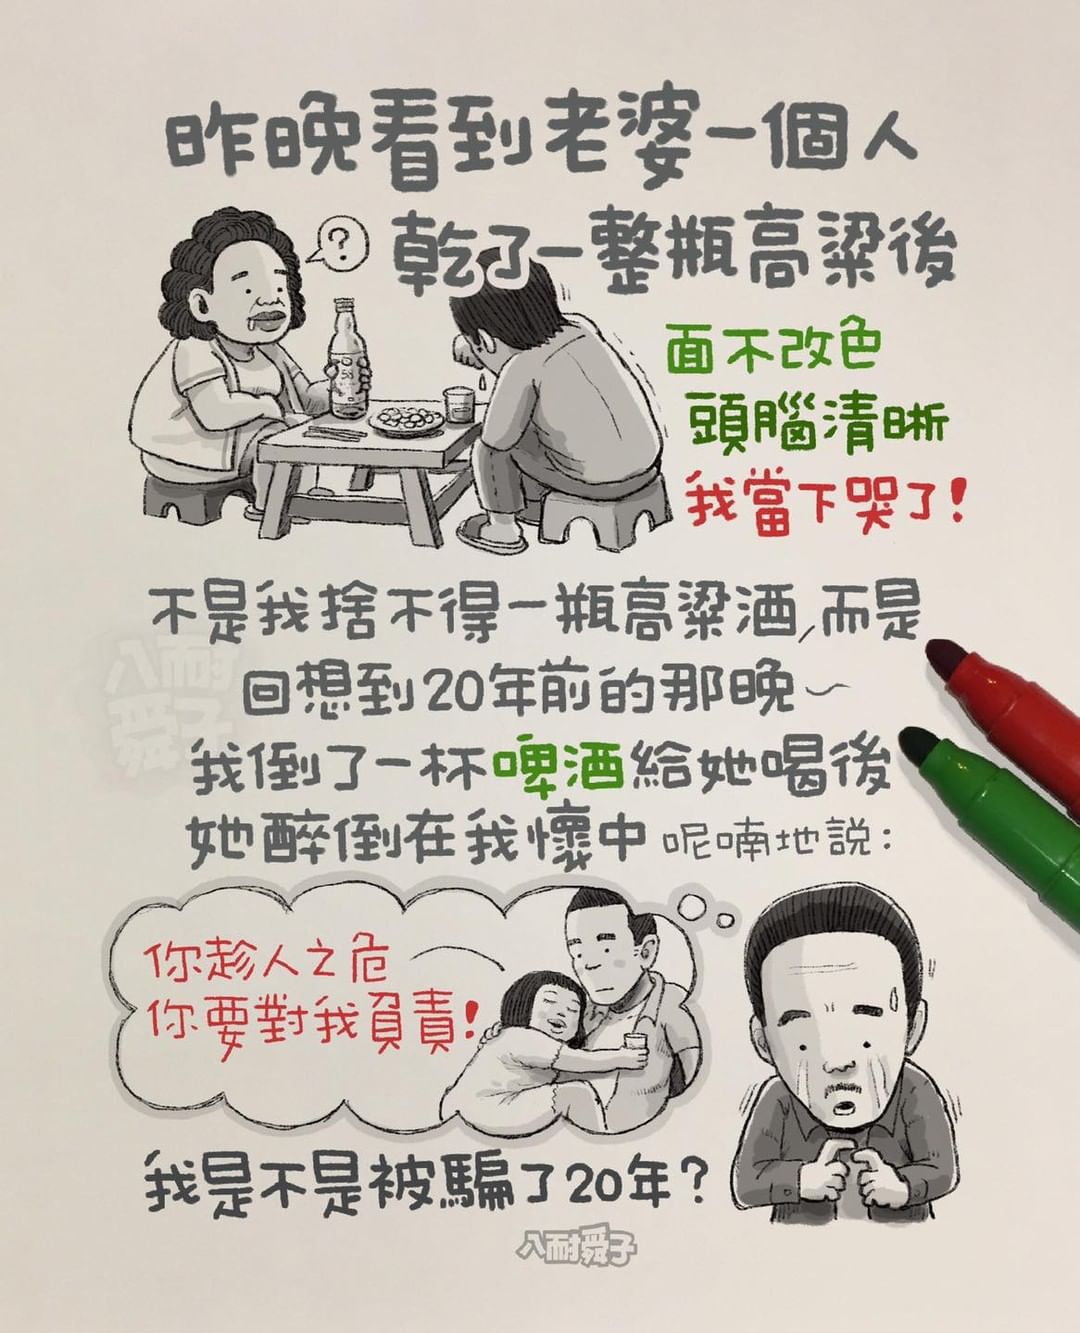 昨晚看到老婆一個人
?
乾了一整瓶高粱後
58
面不改色
頭腦清晰
我當下哭了!
不是我捨不得一瓶高粱酒,而是
回想到20年前的那晚~
我倒了一杯啤酒給她喝後
她醉倒在我懷中 呢喃地説:
你趁人之危
你要對我負責!
我是不是被騙了20年?
八耐舜子
八耐
舜子